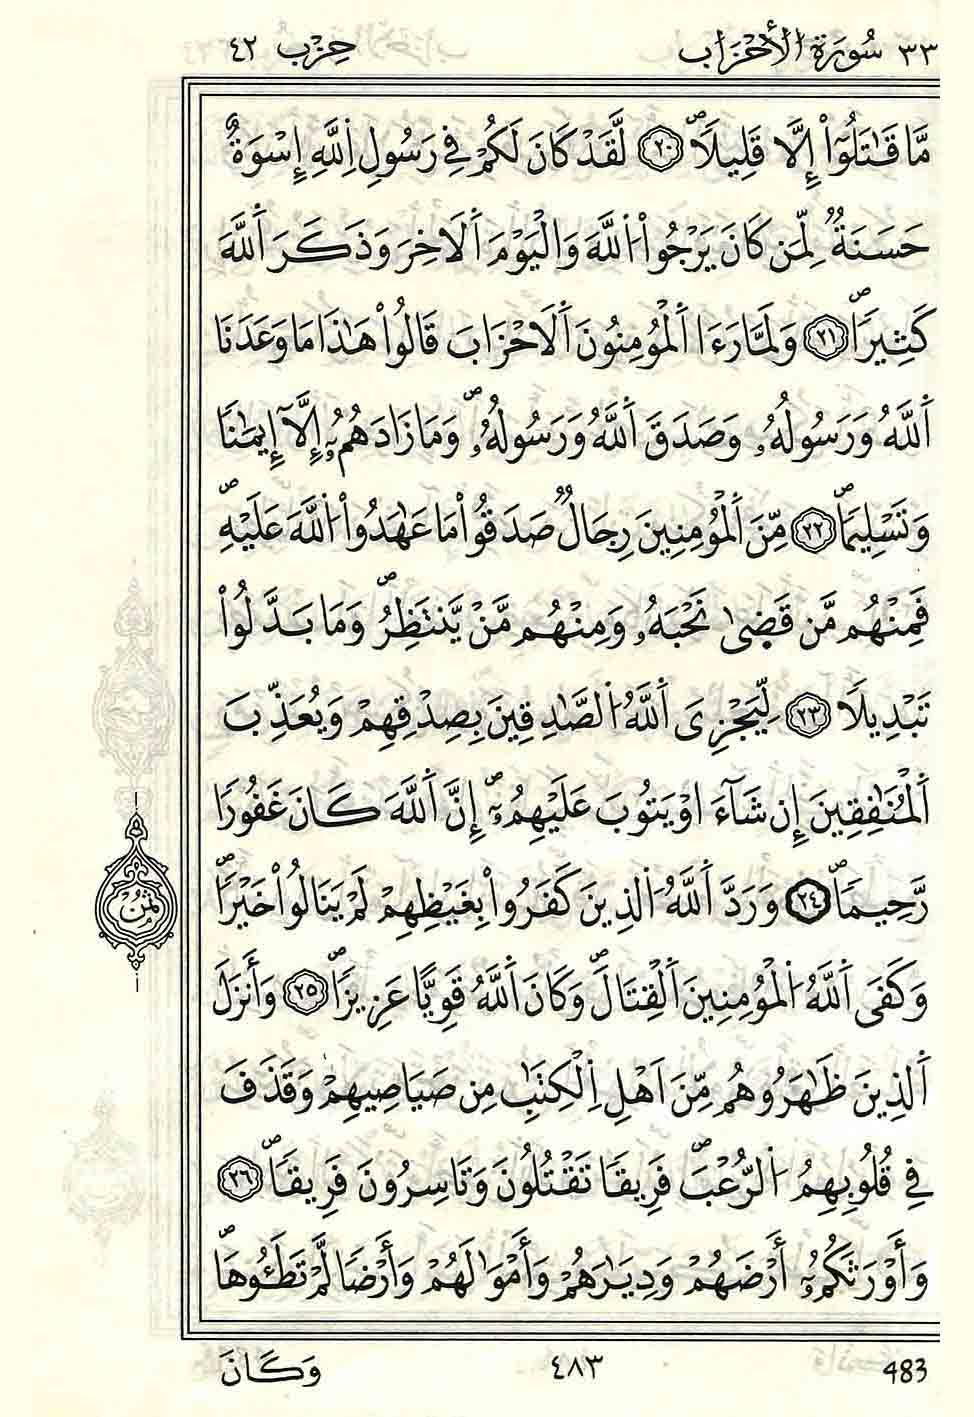 ٣٣ سُورَةُ الأَحْزَابِ حِزْب ٤٢
مَّا قَٰتَلُوٓاْ إِلَّا قَلِيلاٗۖ ٢٠ لَّقَدْ كَانَ لَكُمْ فِي رَسُولِ اِ۬للَّهِ إِسْوَةٌ
حَسَنَةٞ لِّمَن كَانَ يَرْجُواْ اُ۬للَّهَ وَالْيَوْمَ اَ۬لَاخِرَ وَذَكَرَ اَ۬للَّهَ
كَثِيراٗۖ ٢١ وَلَمَّا رَءَا اَ۬لْمُؤْمِنُونَ اَ۬لَاحْزَابَ قَالُواْ هَٰذَا مَا وَعَدَنَا
اَ۬للَّهُ وَرَسُولُهُۥ وَصَدَقَ اَ۬للَّهُ وَرَسُولُهُۥۖ وَمَا زَادَهُمُۥٓ إِلَّآ إِيمَٰناٗ
وَتَسْلِيماٗۖ ٢٢ مِّنَ اَ۬لْمُؤْمِنِينَ رِجَالٞ صَدَقُواْ مَا عَٰهَدُواْ اُ۬للَّهَ عَلَيْهِۖ
فَمِنْهُم مَّن قَض۪ىٰ نَحْبَهُۥ وَمِنْهُم مَّنْ يَّنتَظِرُۖ وَمَا بَدَّلُواْ
تَبْدِيلاٗ ٢٣ لِّيَجْزِيَ اَ۬للَّهُ اُ۬لصَّٰدِقِينَ بِصِدْقِهِمْ وَيُعَذِّبَ
اَ۬لْمُنَٰفِقِينَ إِن شَآءَ اَوْ يَتُوبَ عَلَيْهِمُۥٓۖ إِنَّ اَ۬للَّهَ كَانَ غَفُوراٗ
رَّحِيماٗۖ ٢٤ وَرَدَّ اَ۬للَّهُ اُ۬لذِينَ كَفَرُواْ بِغَيْظِهِمْ لَمْ يَنَالُواْ خَيْراٗۖ
ثُمُن
وَكَفَى اَ۬للَّهُ اُ۬لْمُؤْمِنِينَ اَ۬لْقِتَالَۖ وَكَانَ اَ۬للَّهُ قَوِيّاً عَزِيزاٗۖ ٢٥ وَأَنزَلَ
اَ۬لذِينَ ظَٰهَرُوهُم مِّنَ اَهْلِ اِ۬لْكِتَٰبِ مِن صَيَاصِيهِمْ وَقَذَفَ
فِي قُلُوبِهِمُ اُ۬لرُّعْبَۖ فَرِيقاٗ تَقْتُلُونَ وَتَاسِرُونَ فَرِيقاٗۖ ٢٦
وَأَوْرَثَكُمُۥٓ أَرْضَهُمْ وَدِيَٰرَهُمْ وَأَمْوَٰلَهُمْ وَأَرْضاٗ لَّمْ تَطَـُٔوهَاۖ
483 ٤٨٣ وَكَانَ